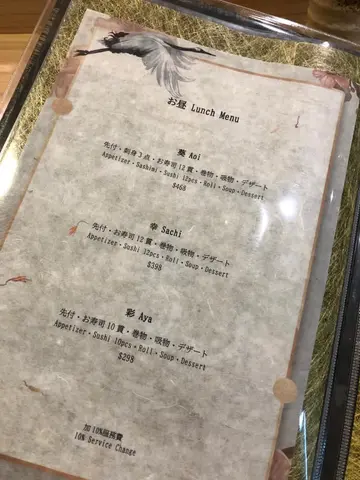 お昼 Lunch Menu
葵 Aoi
先付・刺身3点・お寿司12貫・巻物・吸物・デザート
Appetizer・Sashimi・Sushi 12pcs・Roll・Soup・Dessert
$468
幸 Sachi
先付・お寿司12貫・巻物・吸物・デザート
Appetizer・Sushi 12pcs・Roll・Soup・Dessert
$398
彩 Aya
先付・お寿司10貫・巻物・吸物・デザート
Appetizer・Sushi 10pcs・Roll・Soup・Dessert
$298
加10%服務費
10% Service Change